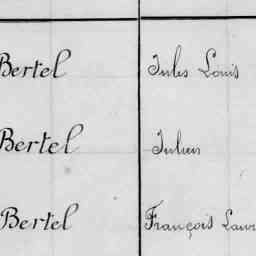 Bertel Jules Louis
Bertel Julien
Bertel François